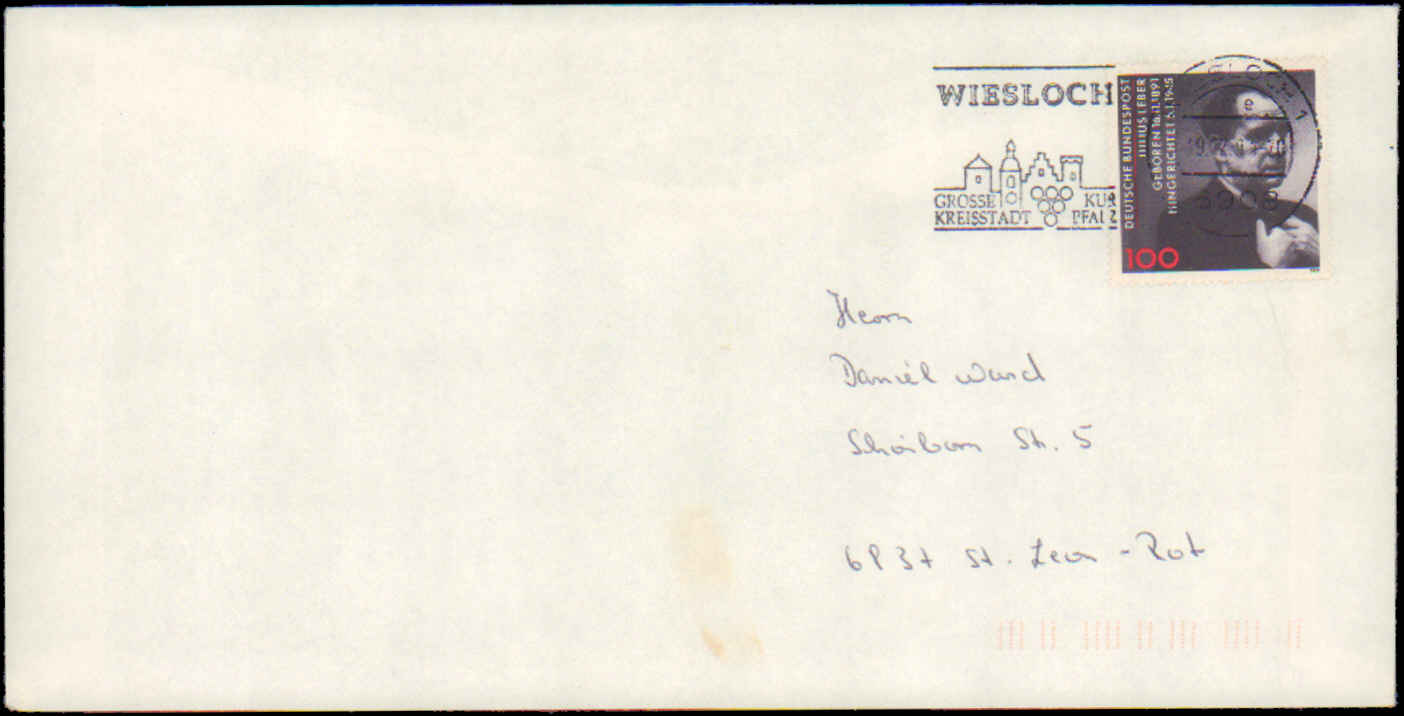 WIESLOCH
GROSSE KUR
KREISSTADT PFALZ
DEUTSCHE BUNDESPOST
JULIUS LEBER
GEBOREN 16.11.1891
HINGERICHTET 5.1.1945
100
e
1
6908
Herrn
Daniel
St. 5
6837 St. Leon-Rot